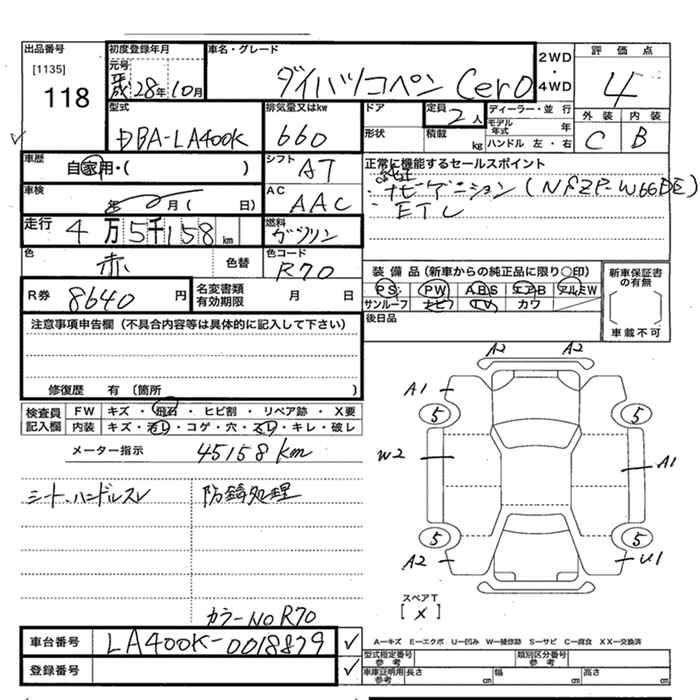 出品番号
[1135]
118
初度登録年月
元号
平成 28年 10月
車名・グレード
ダイハツコペン Cero
2WD
・
4WD
評価点
4
型式
DBA-LA400K
排気量又はkw
660
ドア
形状
定員
2人
積載 kg
ディーラー・並行
モデル年式 年
ハンドル 左・右
外装 内装
C B
車歴
自家用・( )
シフト
AT
正常に機能するセールスポイント
純正
・ナビゲーション(NSZP-W66DE)
・ETC
車検
年 月( 日)
AC
AAC
走行
4万5千158km
燃料
ガソリン
色
赤
色替
色コード
R70
装備品(新車からの純正品に限り○印)
PS PW ABS エアB アルミW
サンルーフ ナビ TV カワ
後日品
新車保証書の有無
車載不可
R券 8640円
名変書類有効期限 月 日
注意事項申告欄(不具合内容等は具体的に記入して下さい)
修復歴 有(箇所 )
検査員記入欄
FW キズ・飛石・ヒビ割・リペア跡・X要
内装 キズ・汚レ・コゲ・穴・スレ・キレ・破レ
メーター指示 45158km
シート、ハンドルスレ
防錆処理
カラーNO R70
A2 A2
A1
5 5
W2
A1
5 5
A2 U1
スペアT
[ X ]
車台番号 LA400K-0018879
登録番号
A—キズ E—エクボ U—凹み W—補修跡 S—サビ C—腐食 XX—交換済
型式指定番号参考
類別区分番号参考
車庫証明用参考 長さ cm 幅 cm 高さ cm